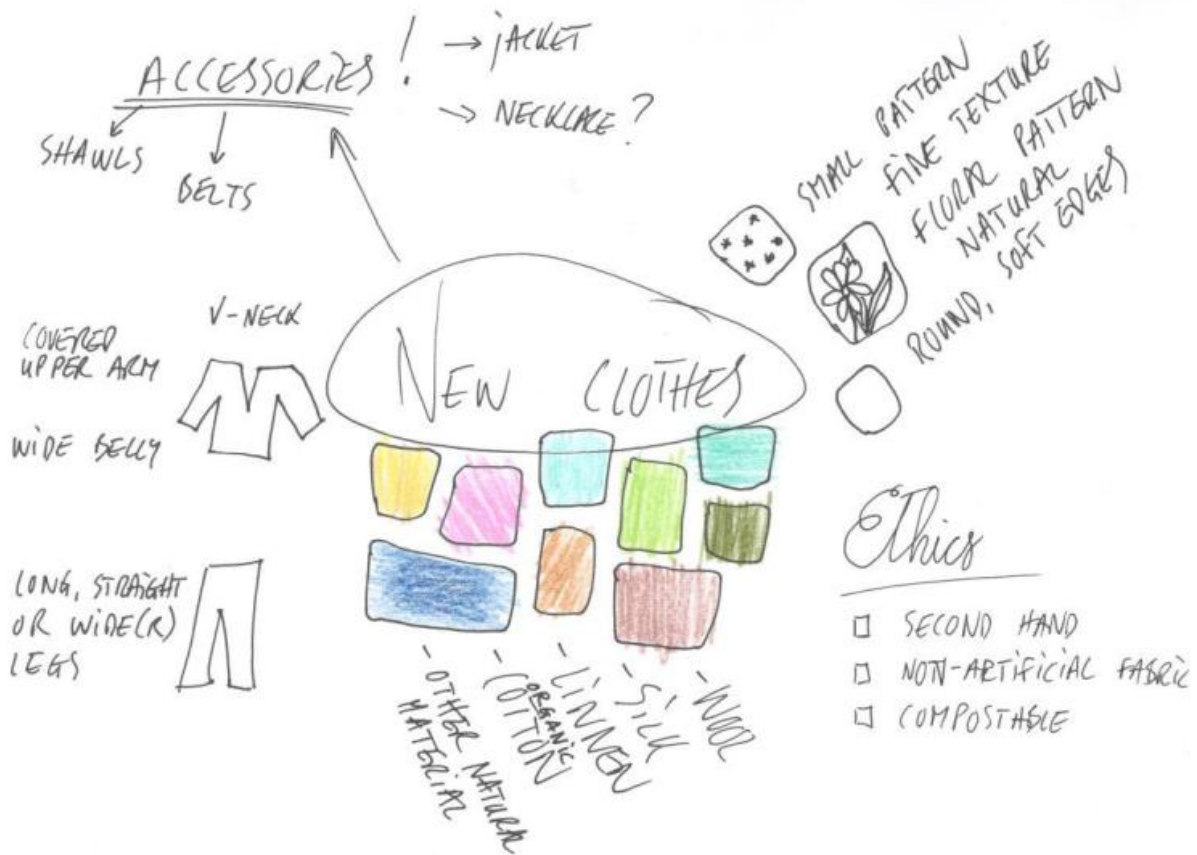 ACCESSORIES ! → JACKET
→ NECKLACE ?
SHAWLS
BELTS
SMALL PATTERN
FINE TEXTURE
FLORAL PATTERN
NATURAL
ROUND, SOFT EDGES
COVERED
UPPER ARM
V-NECK
WIDE BELLY
NEW CLOTHES
LONG, STRAIGHT
OR WIDE(R)
LEGS
Ethics
SECOND HAND
NON-ARTIFICIAL FABRIC
COMPOSTABLE
- OTHER NATURAL
MATERIAL
- ORGANIC
COTTON
- LINNEN
- SILK
- WOOL